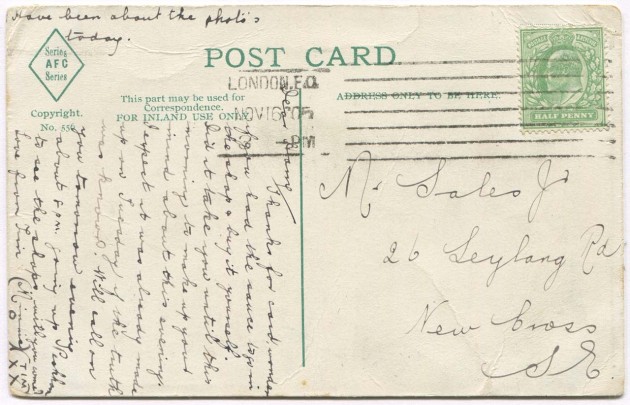 Have been about the photo's
today.
Series
AFC
Series
Copyright.
POST CARD.
This part may be used for
Correspondence.
FOR INLAND USE ONLY.
ADDRESS ONLY TO BE HERE.
HALF PENNY
LONDON.
NOV 16 05
PM
Dear Harry
Thanks for card, wonder
if you had the sauce to go in
the shop & buy it yourself.
Did it take you until this
morning to make up your
mind about this evening.
I expect it was already made
up on Tuesday if the truth
was known. Will call on
you tomorrow evening
about 8 p.m. going up
to see the shops, will you come
love from
XXX
Mr Sales Jr
26 Leylang Rd
New Cross
S.E.